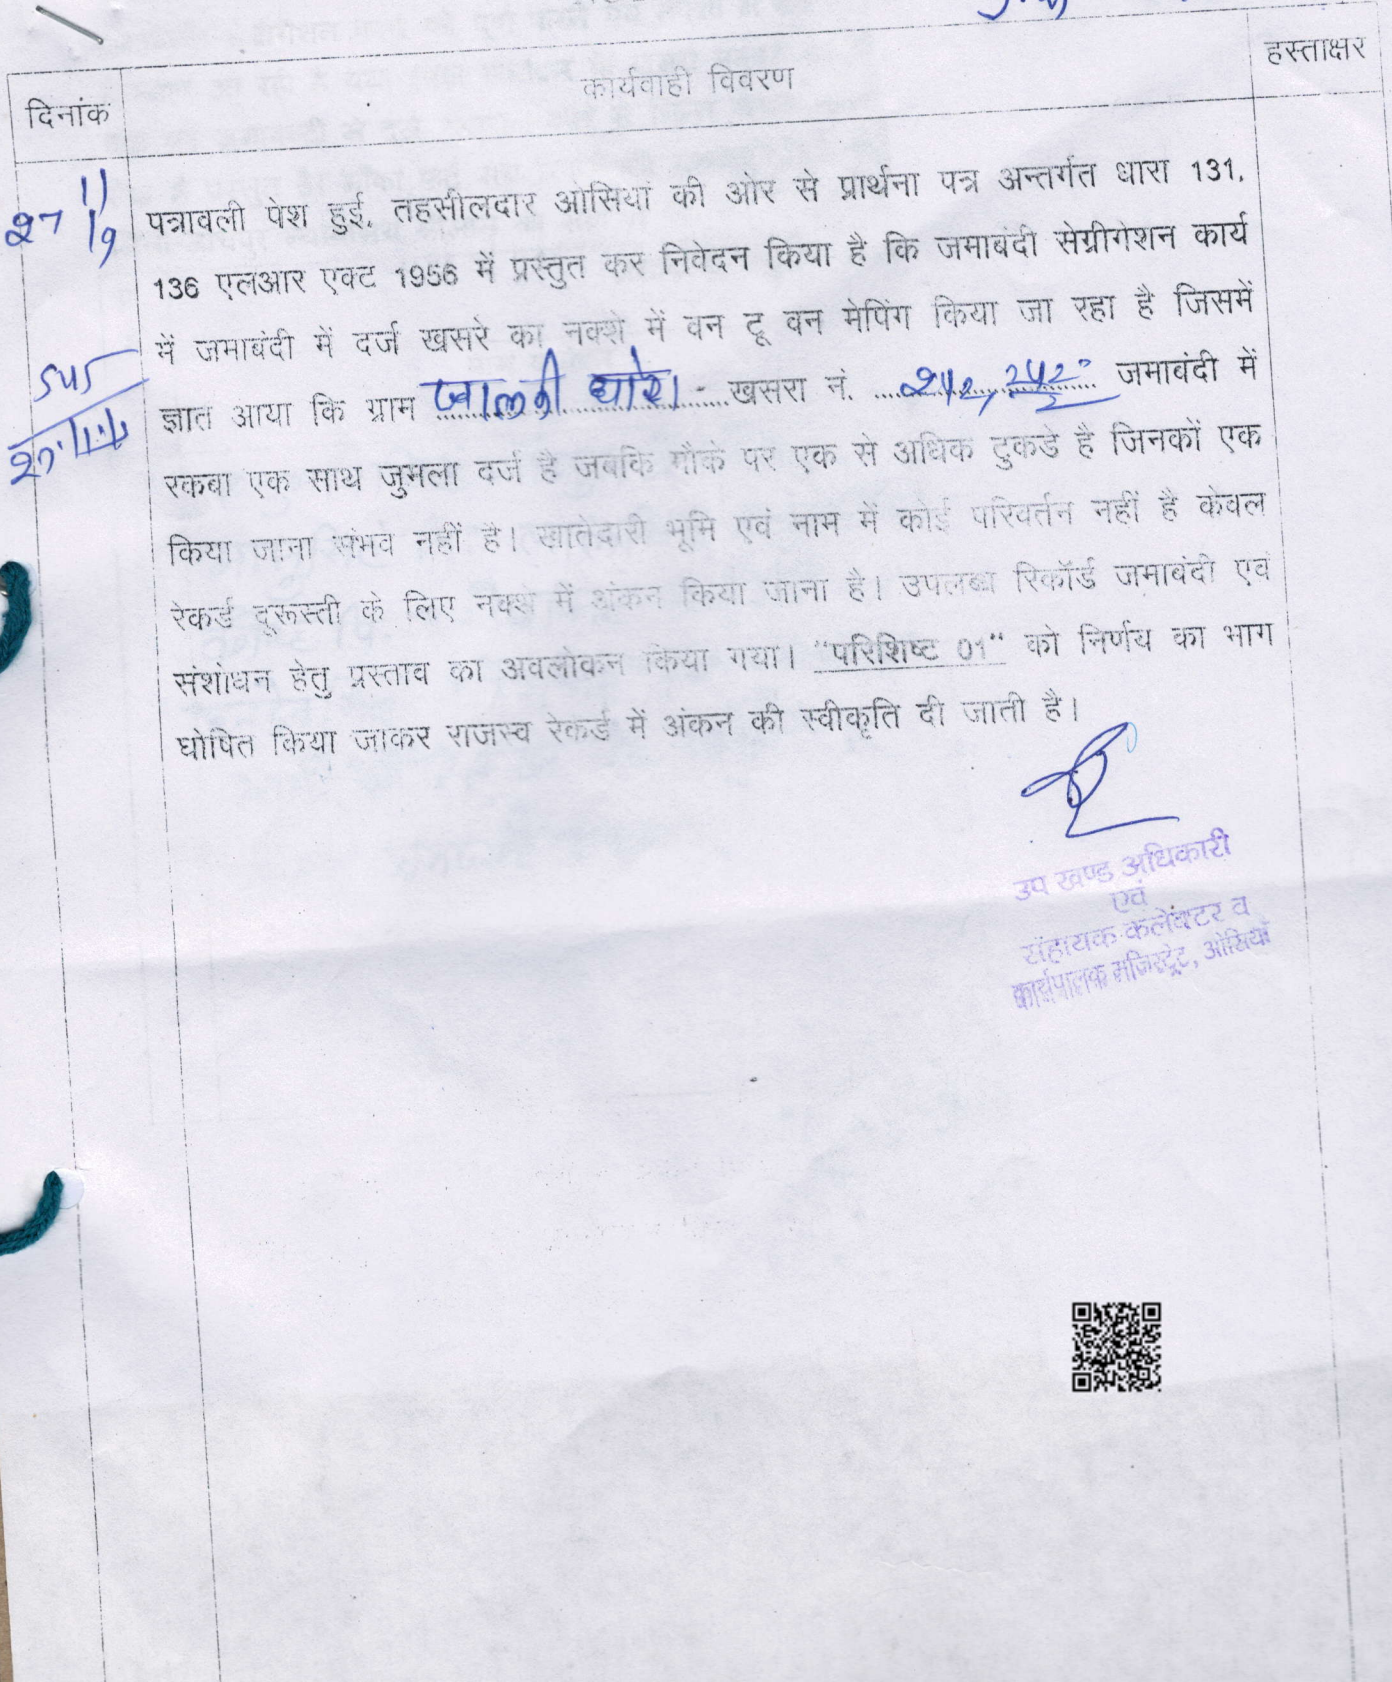 दिनांक
कार्यवाही विवरण
हस्ताक्षर
27 11/19
पत्रावली पेश हुई, तहसीलदार ओसियां की ओर से प्रार्थना पत्र अन्तर्गत धारा 131,
136 एलआर एक्ट 1956 में प्रस्तुत कर निवेदन किया है कि जमाबंदी सेग्रीगेशन कार्य
में जमाबंदी में दर्ज खसरे का नक्शे में वन टू वन मेपिंग किया जा रहा है जिसमें
545
ज्ञात आया कि ग्राम ............ खसरा नं. ............ जमाबंदी में
रकबा एक साथ जुमला दर्ज है जबकि मौके पर एक से अधिक टुकडे है जिनकों एक
किया जाना संभव नहीं है। खातेदारी भूमि एवं नाम में कोई परिवर्तन नहीं है केवल
रेकर्ड दूरूस्ती के लिए नक्शे में अंकन किया जाना है। उपलब्ध रिकॉर्ड जमाबंदी एवं
संशोधन हेतु प्रस्ताव का अवलोकन किया गया। "परिशिष्ट 01" को निर्णय का भाग
घोषित किया जाकर राजस्व रेकर्ड में अंकन की स्वीकृति दी जाती है।
उप खण्ड अधिकारी
एवं
सहायक कलेक्टर व
कार्यपालक मजिस्ट्रेट, ओसियां